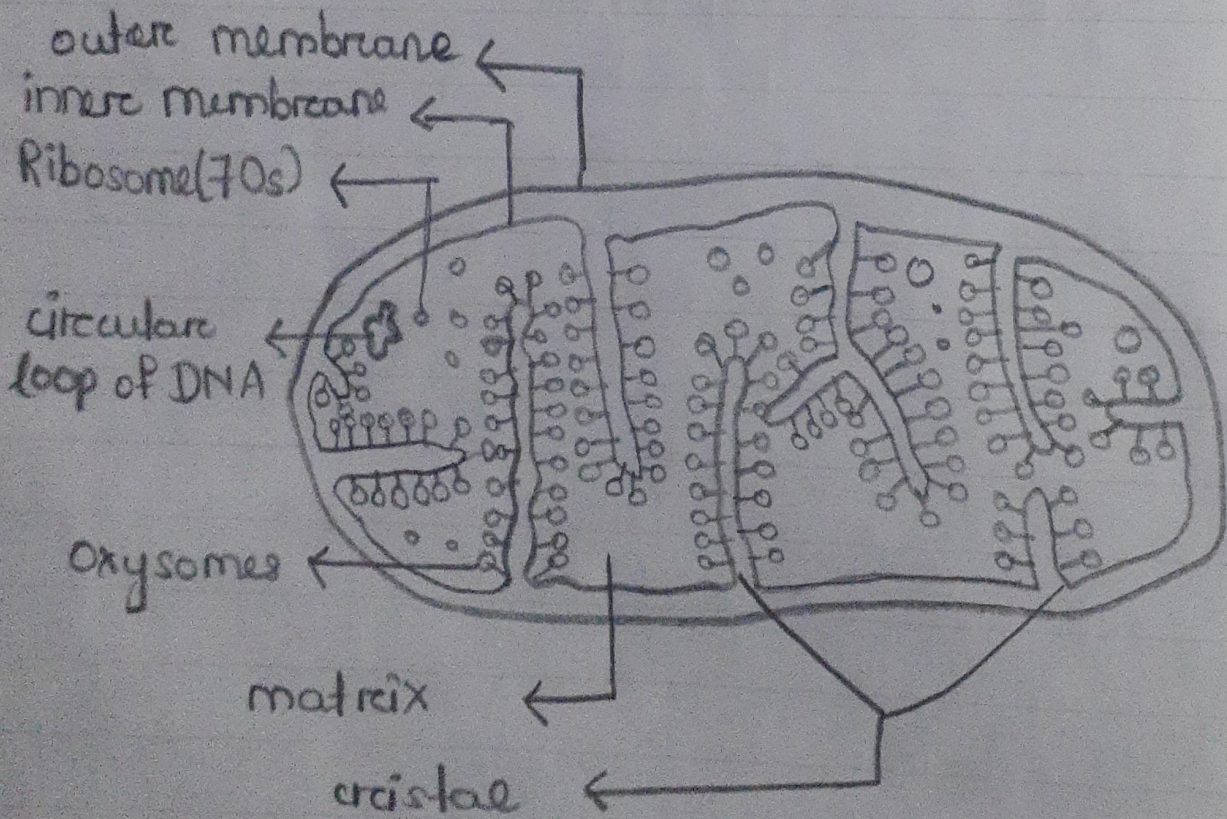 outer membrane
inner membrane
Ribosome(70s)
circular
loop of DNA
oxysomes
matrix
cristae